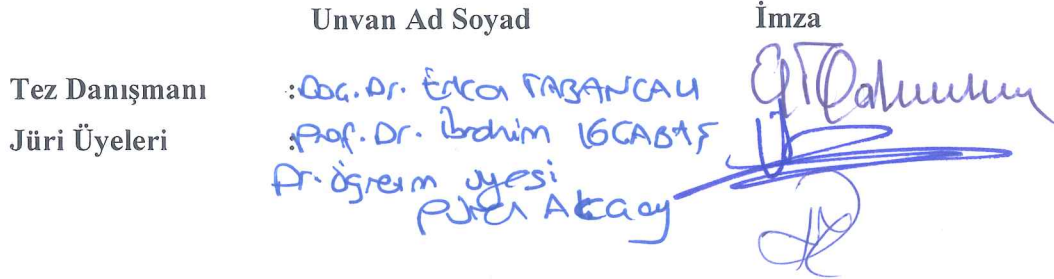 Unvan Ad Soyad İmza
Tez Danışmanı :Doç.Dr. Erca TABANCALI
Jüri Üyeleri :Prof.Dr. İbrahim
Dr. öğretim üyesi
Pınar Akçay